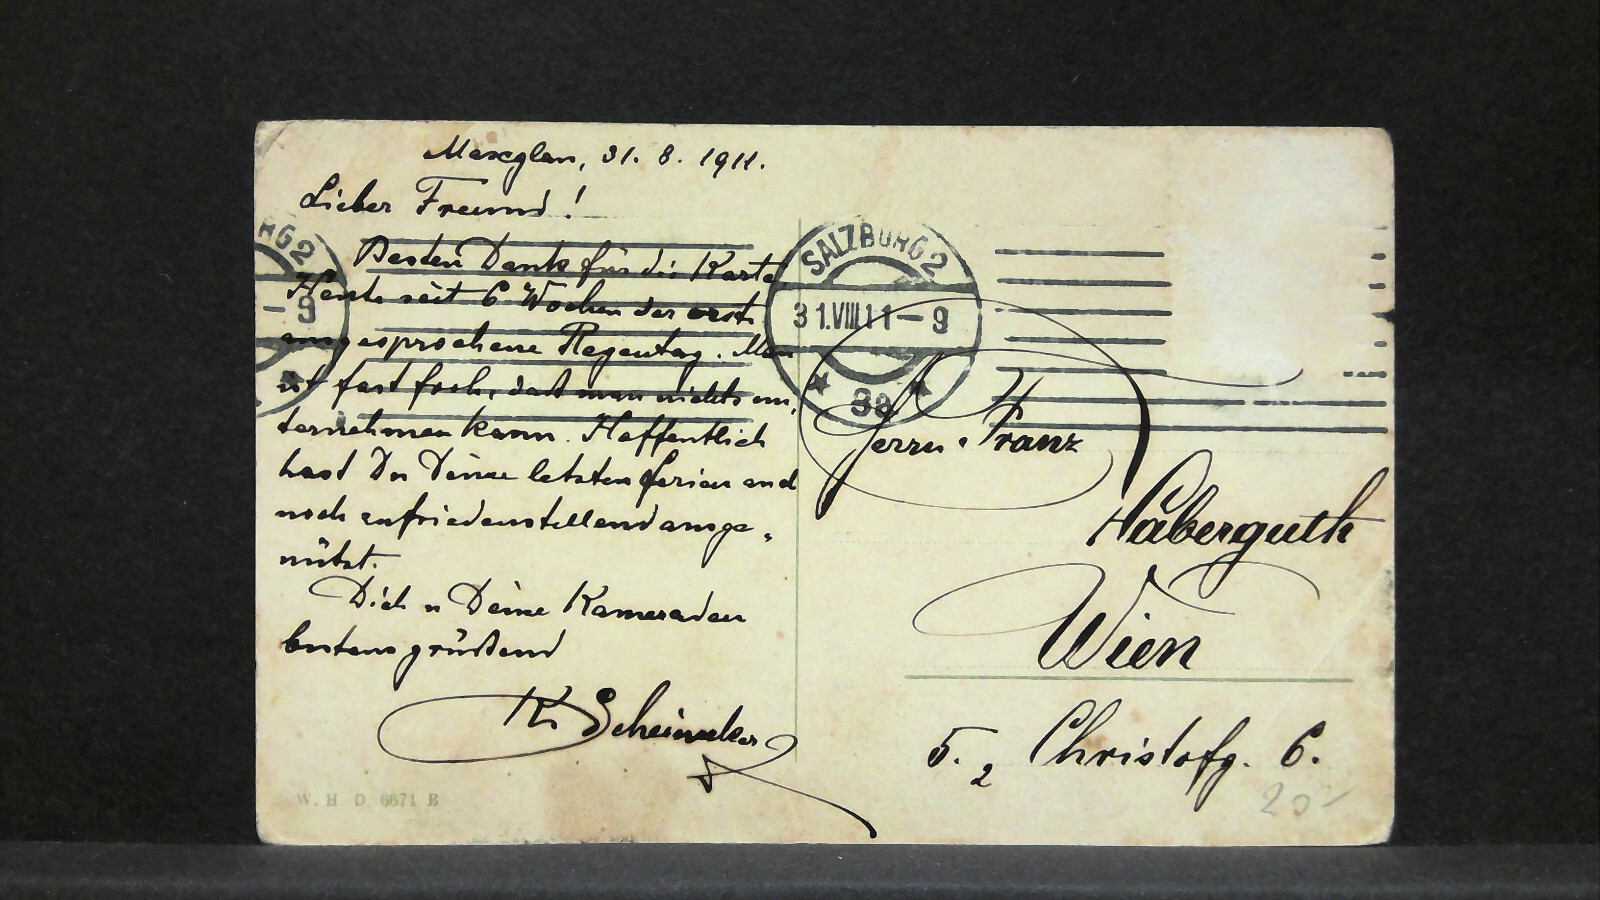 Maxglan, 31. 8. 1911.
Lieber Freund!
Besten Dank für die Karte.
Heute seit 6 Wochen der erste
ausgesprochene Regentag. Man
ist fast froh, daß man nichts un,
ternehmen kann. Hoffentlich
hast Du Deine letzten Ferien auch
noch zufriedenstellend ausge,
nützt.
Dich u Deine Kameraden
bestens grüßend
K.
W. H D 6671 B
RG 2
- 9
SALZBURG 2
31.VIII.11-9
3a
Herrn Franz
Haberguth
Wien
5.2 Christofg. 6.
20-